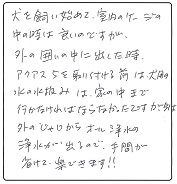 犬を飼い始めて、室内のケージの
中の時は良いのですが、
外の囲いの中に出した時、
アクアスSを取り付ける前は犬用の
水の水汲みは、家の中まで
行かなければならなかったですが今は
外のじゃ口からオール浄水の
浄水が出るので、手間が
省けて楽できます!!